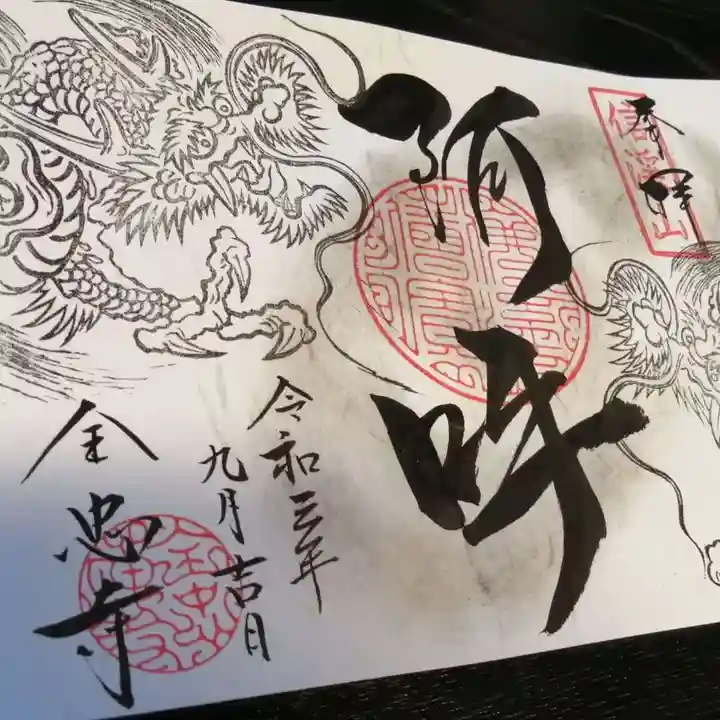 奉拝
阿吽
令和三年
九月吉日
全忠寺